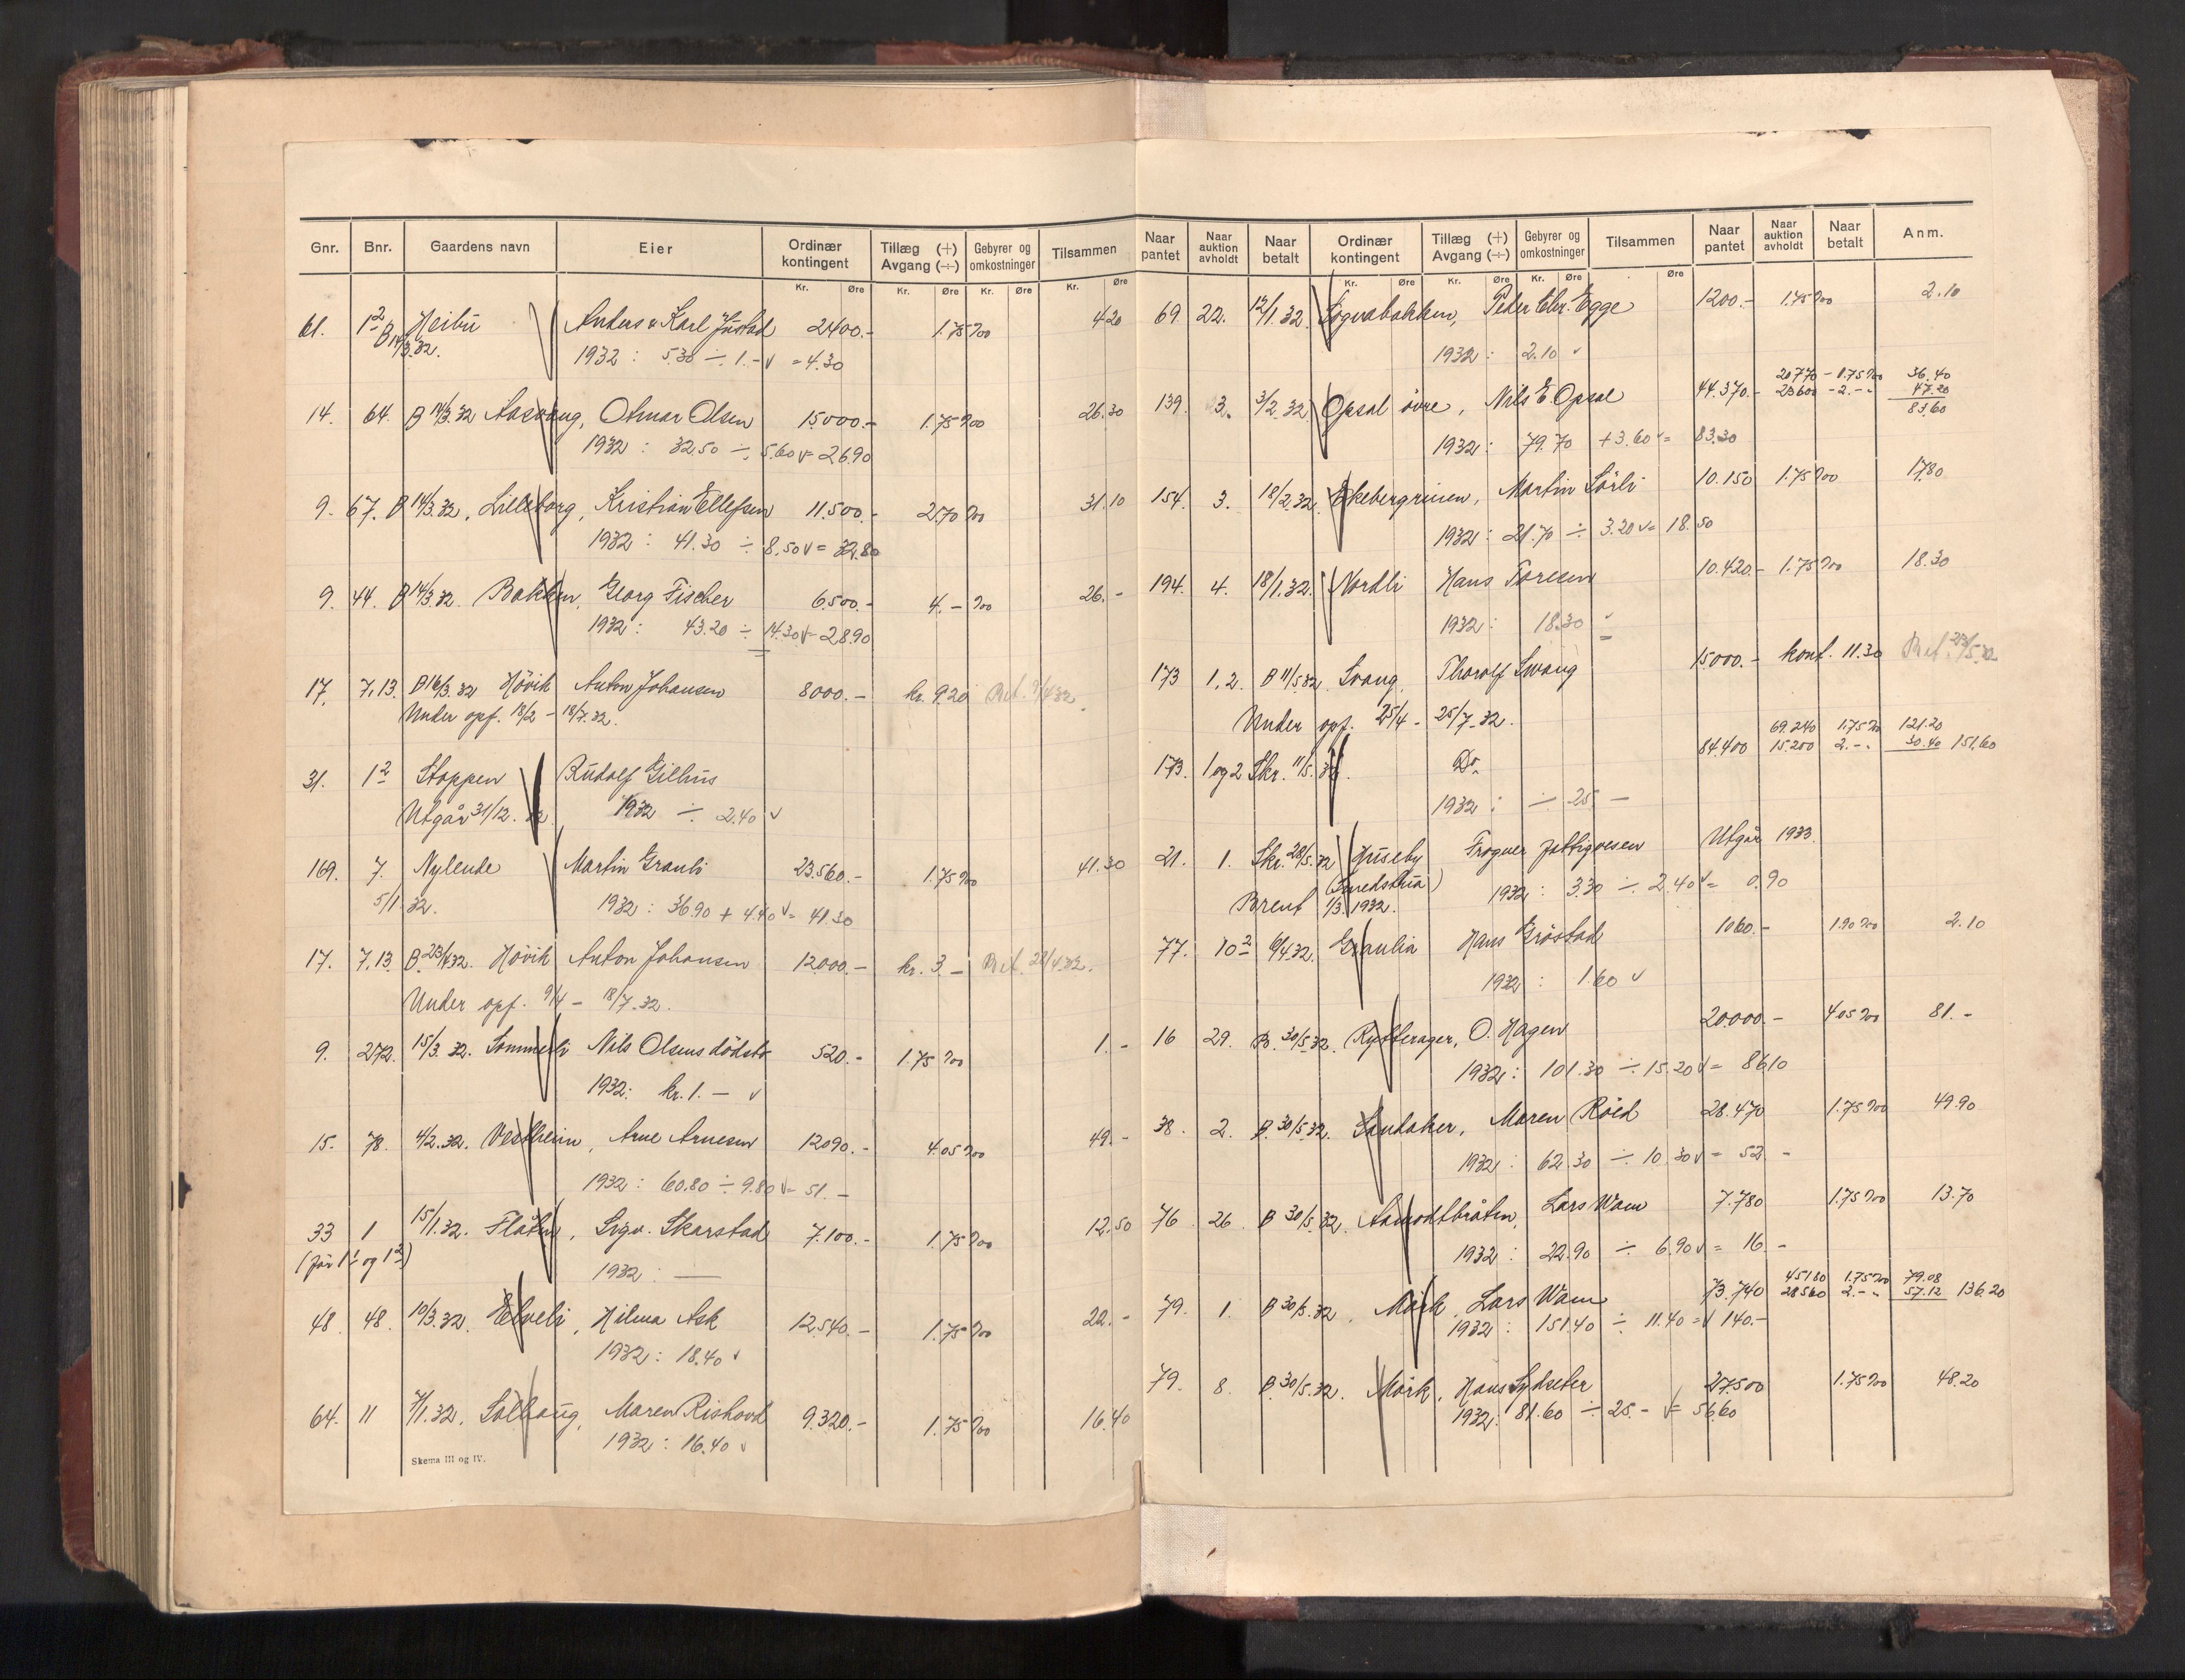 Gnr. Bnr. Gaardens navn Eier Ordinær kontingent Tillæg (+) Avgang (÷) Gebyrer og omkostninger Tilsammen
Kr. Øre Kr. Øre Kr. Øre Kr. Øre
61. 1² Heibu Anders & Karl Justad 2400.- 1.75 ‰ 4.20
B 14/3.32. 1932 : 5.30 ÷ 1.- v = 4.30
14. 64. B 14/3.32 Aasvang, Otmar Olsen 15000.- 1.75 ‰ 26.30
1932 : 32.50 ÷ 5.60 v = 26.90
9. 67. B 14/3.32. Lilleborg, Kristian Ellefsen 11.500.- 2.70 ‰ 31.10
1932 : 41.30 ÷ 8.50 v = 32.80
9. 44. B 14/3.32. Bakken, Georg Fischer 6.500.- 4.- ‰ 26.-
1932 : 43.20 ÷ 14.30 v = 28.90
17. 7,13. B 16/3.32 Hövik Anton Johansen 8000.- kr. 9.20 Bet. 7/4 32.
Under opf. 18/2 - 18/7.32.
31. 1² Stoppen Rudolf Gilhus
Utgår 31/12.32 1932 ÷ 2.40 v
169. 7. Nylende Martin Grauli 23.560.- 1.75 ‰ 41.30
5/1.32. 1932 : 36.90 + 4.40 v = 41.30
17. 7,13. B. 23/4 32. Hövik Anton Johansen 12000.- kr. 3.- Bet. 28/4.32.
Under opf. 9/4 - 18/7.32.
9. 272. 15/3.32. Sommerli Nils Olsens dödsbo 520.- 1.75 ‰ 1.-
1932: kr. 1.- v
15. 78. 4/2.32. Vestheim, Arne Arnesen 12090.- 4.05 ‰ 49.-
1932 : 60.80 ÷ 9.80 v = 51.-
33 1 15/1.32. Flåten, Sigv. Skarstad 7.100.- 1.75 ‰ 12.50
(för 1¹ og 1²) 1932 : —
48. 48. 10/3.32. Elveli, Hilma Ask 12.540.- 1.75 ‰ 22.-
1932 : 18.40 v
64. 11 7/1.32. Solhaug, Maren Rishovd 9.320.- 1.75 ‰ 16.40
1932 : 16.40 v
Skema III og IV.
Naar pantet Naar auktion avholdt Naar betalt Ordinær kontingent Tillæg (+) Avgang (÷) Gebyrer og omkostninger Tilsammen Naar pantet Naar auktion avholdt Naar betalt Anm.
Kr. Øre Kr. Øre Kr. Øre Øre
69. 22. 12/1.32. Sogvabakken, Peder Chr. Egge 1200.- 1.75 ‰ 2.10
1932 : 2.10 v
20770 - 1.75 ‰ 36.40
139. 3. 3/2.32. Opsal övre, Nils E. Opsal 44.370.- 23600 - 2.- " 47.20
83.60
1932 : 79.70 + 3.60 v = 83.30
154. 3. 18/2.32. Ekebergruen, Martin Sörli 10.150 1.75 ‰ 17.80
1932 : 21.70 ÷ 3.20 v = 18.50
194. 4. 18/1.32. Nordli Hans Toresen 10.420.- 1.75 ‰ 18.30
1932 : 18.30 v
173 1,2. B 11/5 32. Svang. Thorolf Svang 15000.- kont. 11.30 Bet. 23/5.32
Under opf. 25/4 - 25/7.32.
69.240 1.75 ‰ 121.20
173. 1 og 2 Skr. 11/5.32. Do. 84.400 15.200 2.- " 30.40 151.60
1932 : ÷ 25.-
21. 1. Skr. 28/5.32 Huseby Frogner fattigvesen Utgår 1933.
(Smedstua) 1932 : 3.30 ÷ 2.40 v = 0.90
Brent 1/3.1932.
77. 10² 6/4 32. Graulia Hans Gröstad 1060.- 1.90 ‰ 2.10
1932 : 1.60 v
16 29. B. 30/5.32. Rytterager, O. Hagen 20.000.- 4.05 ‰ 81.-
1932 : 101.30 ÷ 15.20 v = 86.10
38. 2. B. 30/5.32. Sandaker, Maren Röed 28.470 1.75 ‰ 49.90
1932 : 62.30 ÷ 10.30 v = 52.-
76 26 B 30/5.32. Aamodtbråten, Lars Wam 7.780 1.75 ‰ 13.70
1932 : 22.90 ÷ 6.90 v = 16.-
45180 1.75 ‰ 79.08
79. 1. B 30/5.32. Mörk, Lars Wam 73.740 28560 2.- " 57.12 136.20
1932 : 151.40 ÷ 11.40 = v 140.-
79. 8. B. 30/5.32. Mörk, Hans Sydseter 27.500 1.75 ‰ 48.20
1932 : 81.60 ÷ 25.- v = 56.60